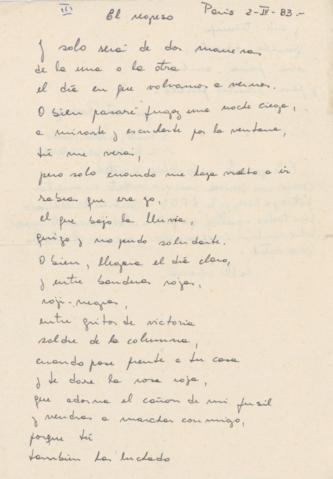 III
El regreso Paris 2-IV-83.-
Y solo será de dos maneras
de la una o la otra
el día en que volvamos a vernos.
O bien pasaré fugaz una noche ciega,
a mirarte y escucharte por la ventana,
tú me verás,
pero solo cuando me haya vuelto a ir
sabrás que era yo,
el que bajo la lluvia,
quizo y no pudo saludarte.
O bien, llegara el día claro,
y entre banderas rojas,
roji-negras,
entre gritos de victoria
saldre de la columna,
cuando pase frente a tu casa
y te dare la rosa roja,
que adorna el cañon de mi fusil
y vendras a marchar conmigo,
porque tú
tambien has luchado